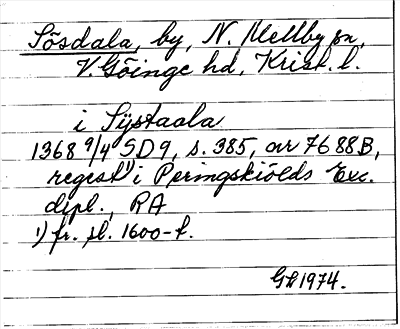 Sösdala, by, N. Mellby sn,
V. Göinge hd, Krist. l.
i Sÿstaala
1368 9/4 SD 9, s. 385, avr 7688B,
regest 1) i Peringskiölds Exc.
dipl., RA
1) fr. sl. 1600-t.
GH 1974.